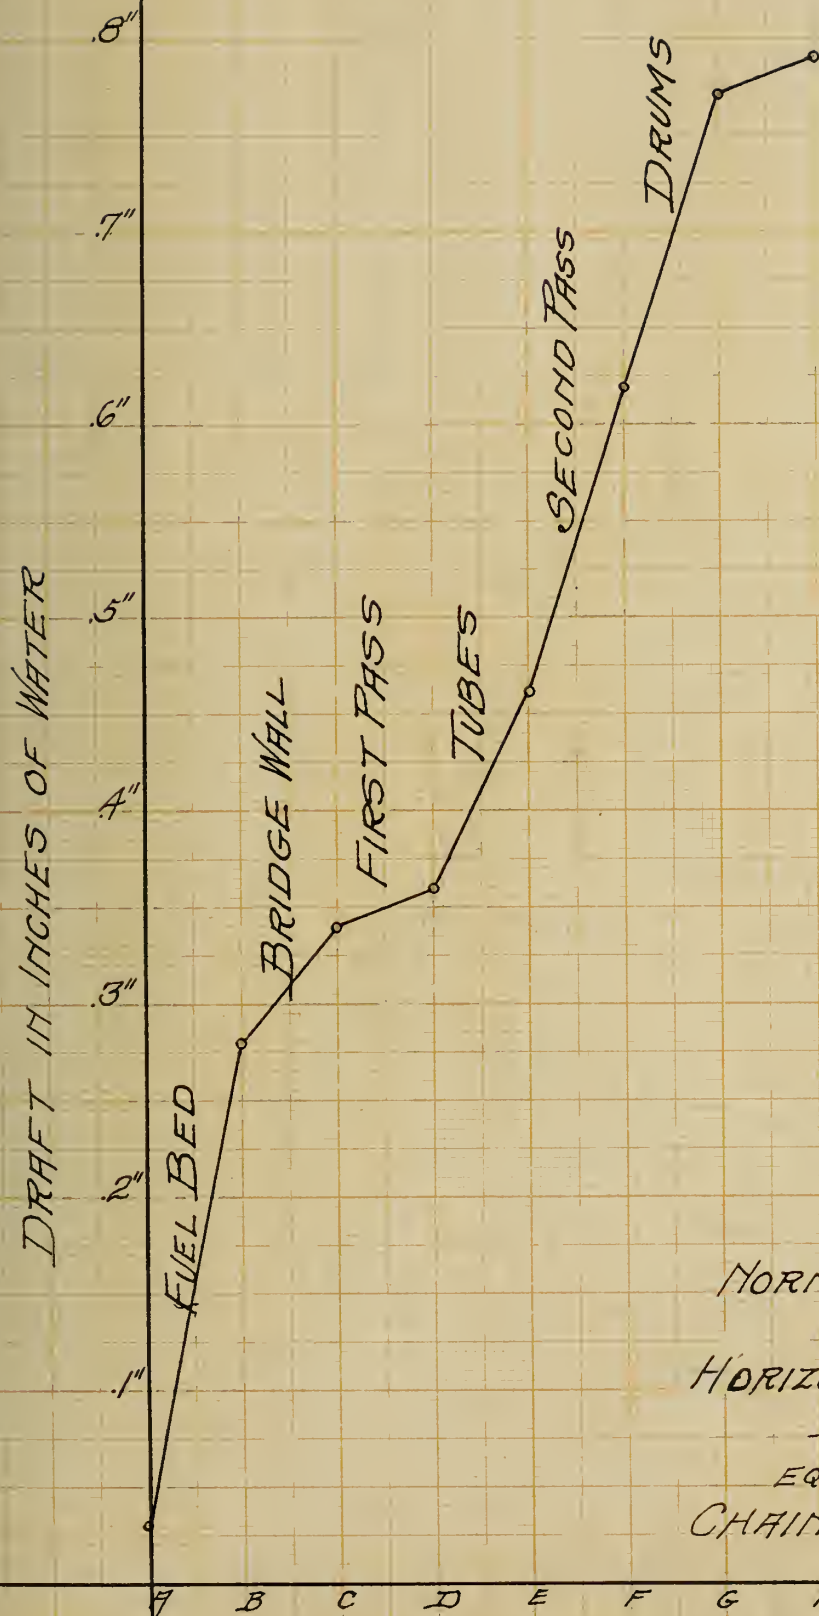 .8"
.7"
.6"
.5"
.4"
.3"
.2"
.1"
DRAFT IN INCHES OF WATER
FUEL BED
BRIDGE WALL
FIRST PASS
TUBES
SECOND PASS
DRUMS
NORM
HORIZO
EQ
CHAIN
A B C D E F G